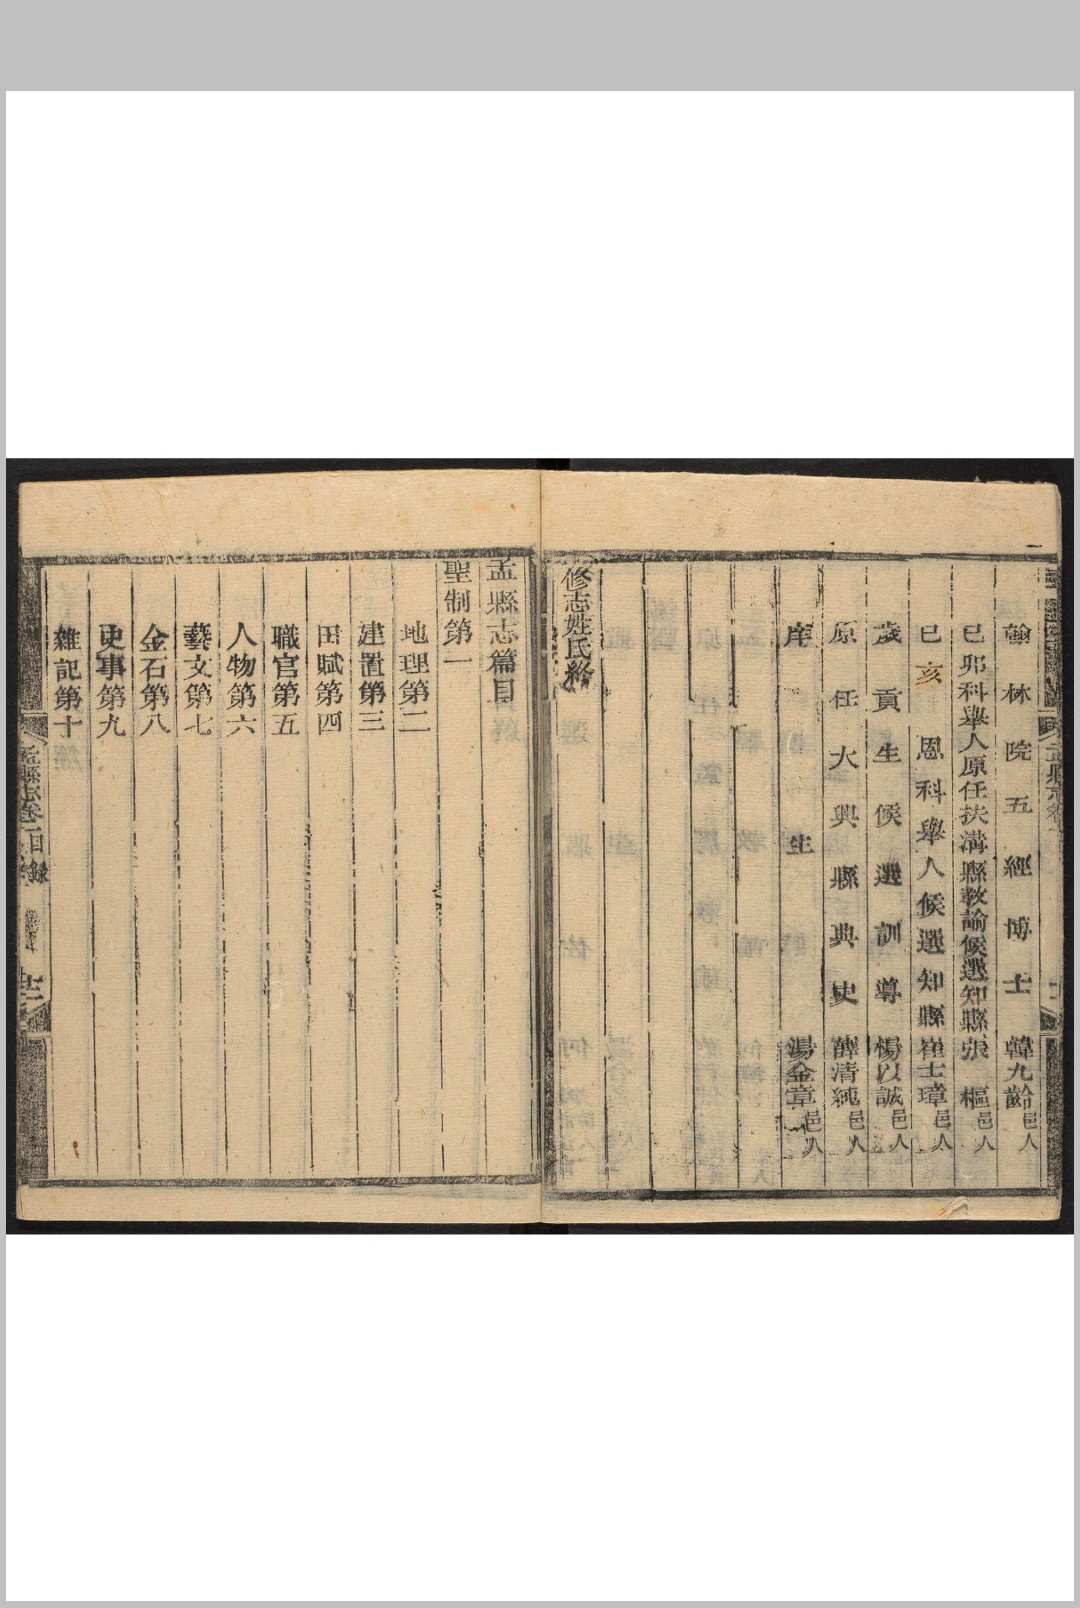 翰林院五經博士韓九齡邑人
己卯科舉人原任扶溝縣教諭候選知縣張樞邑人
己亥恩科舉人候選知縣崔士璋邑人
歲貢生候選訓導楊以誠邑人
原任大興縣典史薛清純邑人
庠生湯金章邑人
修志姓氏終
孟縣志篇目
聖制第一
地理第二
建置第三
田賦第四
職官第五
人物第六
藝文第七
金石第八
史事第九
雜記第十
孟縣志卷一目錄